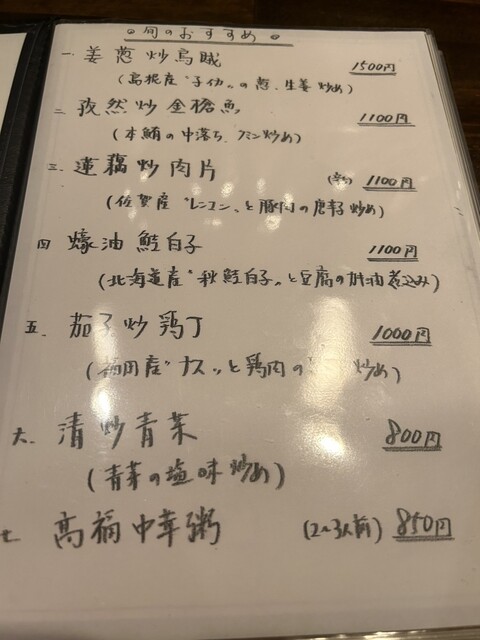 旬のおすすめ
一 姜葱炒烏賊 1500円
(島根産"子イカ"の葱、生姜炒め)
二 孜然炒金槍魚 1100円
(本鮪の中落ち、クミン炒め)
三. 蓮藕炒肉片 (辛) 1100円
(佐賀産"レンコン"と豚肉の唐辛子炒め)
四 蠔油鮭白子 1100円
(北海道産"秋鮭白子"と豆腐の 油煮込み)
五. 茄子炒鶏丁 1000円
(福田産"ナス"と鶏肉の 炒め)
六. 清炒青菜 800円
(青菜の塩味炒め)
七 高福中華粥 (2~3人前) 850円